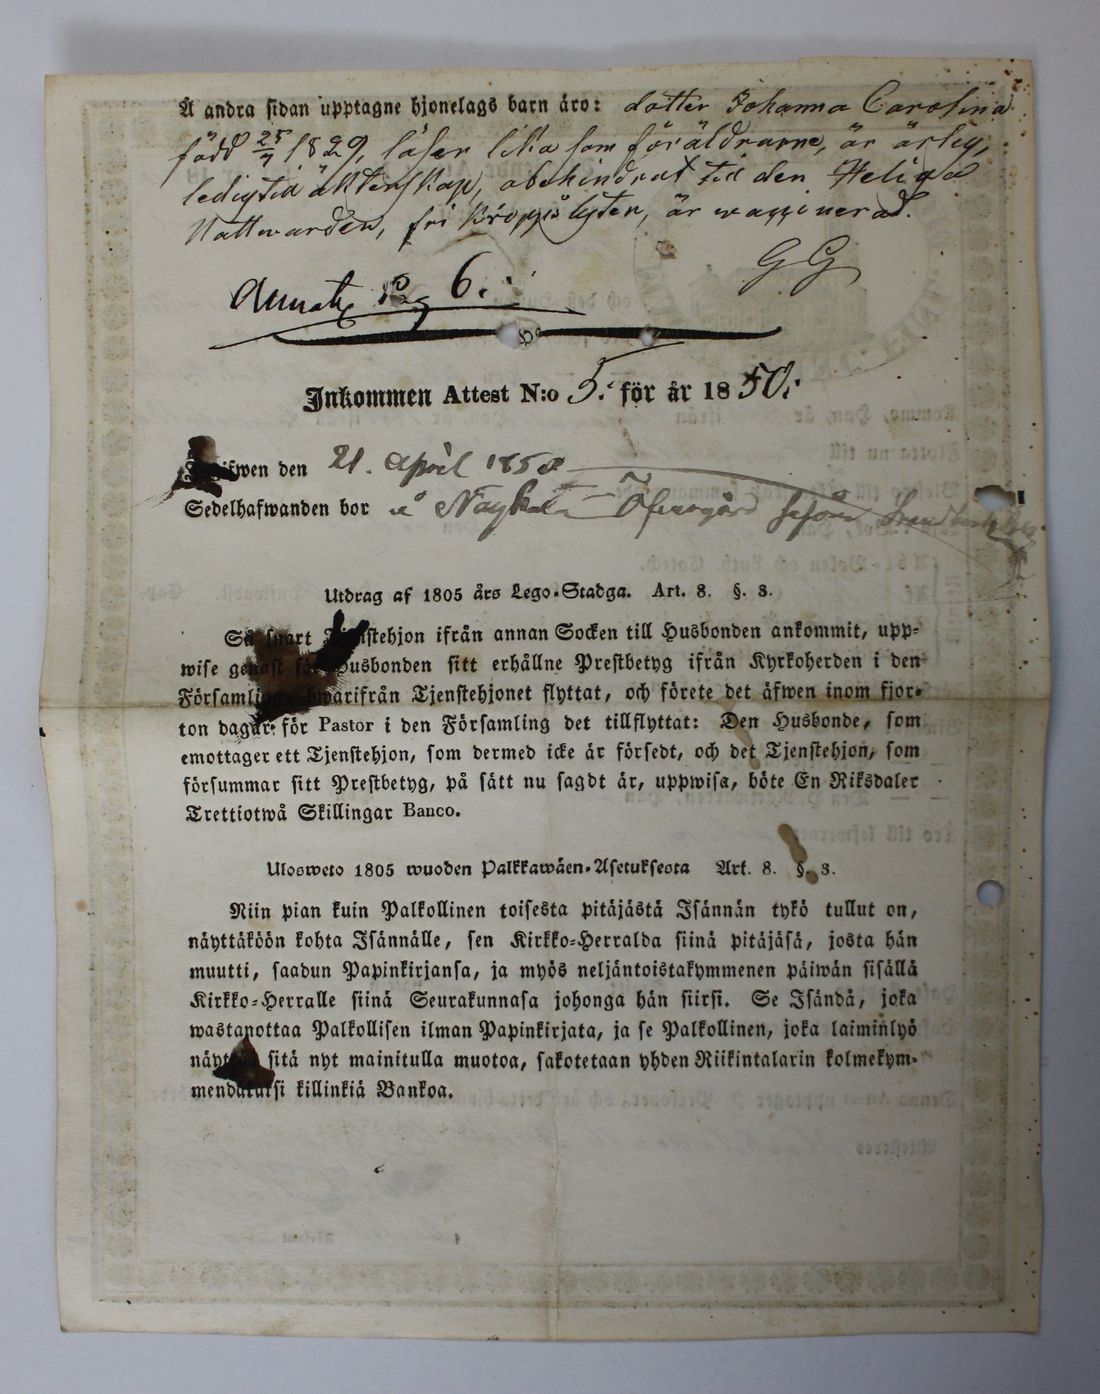 Å andra sidan upptagne hjonelags barn äro: dotter Johanna Carolina
född 25/7 1829, läser lika som föräldrarne, är ärlig,
ledig till äktenskap, obehindrat till den Heliga
Nattwarden, fri kroppslyten, är waccinerad.
GG
Annot. Pag 6.
Inkommen Attest N:o 5. för år 1850.
den 21. April 1850
Sedelhafwanden bor å Öfwergård
Utdrag af 1805 års Lego-Stadga. Art. 8. §. 3.
Så snart Tjenstehjon ifrån annan Socken till Husbonden ankommit, upp-
wise genast för Husbonden sitt erhållne Prestbetyg ifrån Kyrkoherden i den
Församling, hwarifrån Tjenstehjonet flyttat, och förete det äfwen inom fjor-
ton dagar för Pastor i den Församling det tillflyttat: Den Husbonde, som
emottager ett Tjenstehjon, som dermed icke är försedt, och det Tjenstehjon, som
försummar sitt Prestbetyg, på sätt nu sagdt är, uppwisa, böte En Riksdaler
Trettiotwå Skillingar Banco.
Ulosweto 1805 wuoden Palkkawäen-Asetuksesta Art. 8. §. 3.
Niin pian kuin Palkollinen toisesta pitäjästä Isännän tykö tullut on,
näyttäköön kohta Isännälle, sen Kirkko-Herralda siinä pitäjäsä, josta hän
muutti, saadun Papinkirjansa, ja myös neljäntoistakymmenen päiwän sisällä
Kirkko-Herralle siinä Seurakunnasa johonga hän siirsi. Se Isändä, joka
wastanottaa Palkollisen ilman Papinkirjata, ja se Palkollinen, joka laiminlyö
näyttää sitä nyt mainitulla muotoa, sakotetaan yhden Riikintalarin kolmekym-
mendakaksi killinkiä Bankoa.